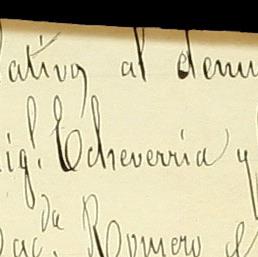 lativos al denu
Mig.l Echeverria y
da
Romero